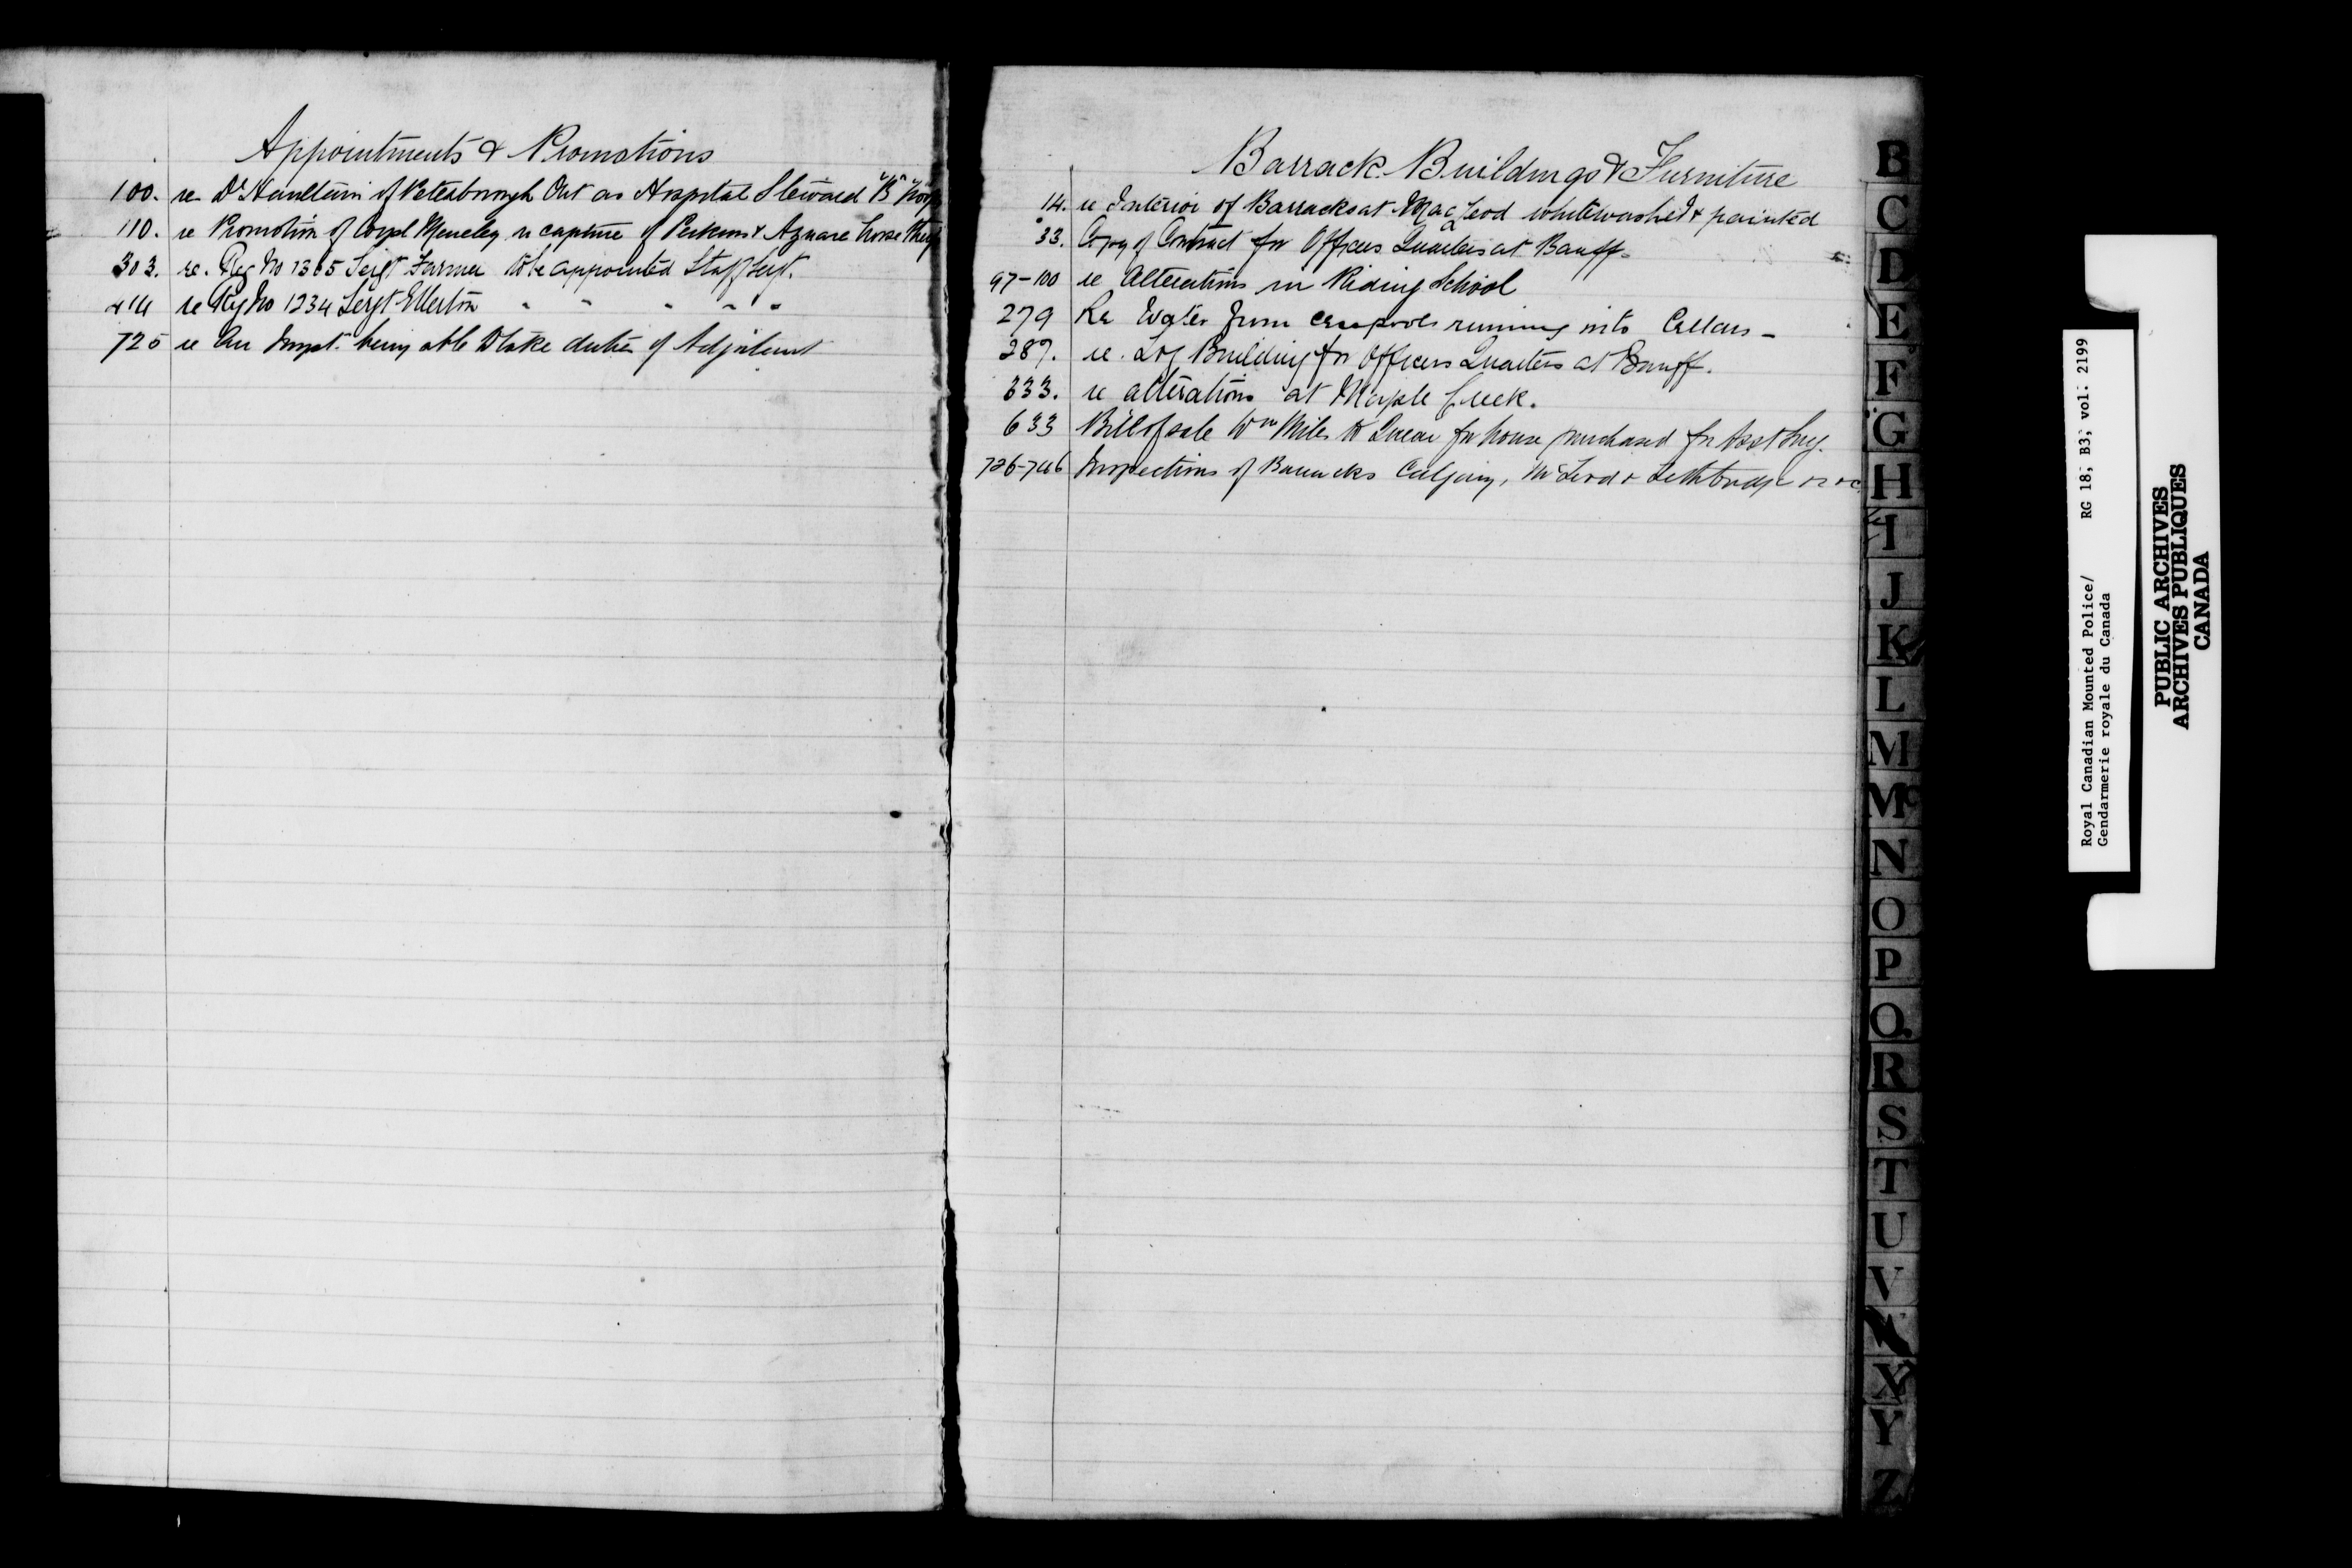 Appointments & Promotions
100. re Dr Haultain of Peterborough Ont as Hospital Steward "B" Troop
110. re Promotion of Corpl Meneley re capture of Perkins & Aznare horse thieves
303. re. Reg No 1365 Sergt Farmer to be appointed Staff Sergt.
414 re Reg No 1234 Sergt Ellerton " " " " "
725 re An Inspt. being able to take duties of Adjutant
Barrack Buildings & Furniture
14. re Interior of Barracks at MacLeod whitewashed & painted
33. Copy of Contract for Officers Quarters at Banff.
97-100 re Alterations in Riding School
279 Re Water from cesspools running into Cellars -
287. re. Log Building for Officers Quarters at Banff.
333. re alterations at Maple Creek.
633 Bill of sale Wm Miles to for house purchased for Asst Surg.
726-746 Inspections of Barracks Calgary, McLeod & Lethbridge
B
C
D
E
F
G
H
I
J
K
L
M
Mc
N
O
P
Q
R
S
T
U
V
X
Y
Z
Royal Canadian Mounted Police/ RG 18, B3, vol. 2199
Gendarmerie royale du Canada
PUBLIC ARCHIVES
ARCHIVES PUBLIQUES
CANADA